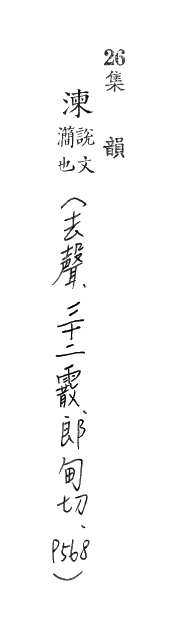 26集 韻
湅說文㶕也(去聲、三十二霰、郎甸切、P568)